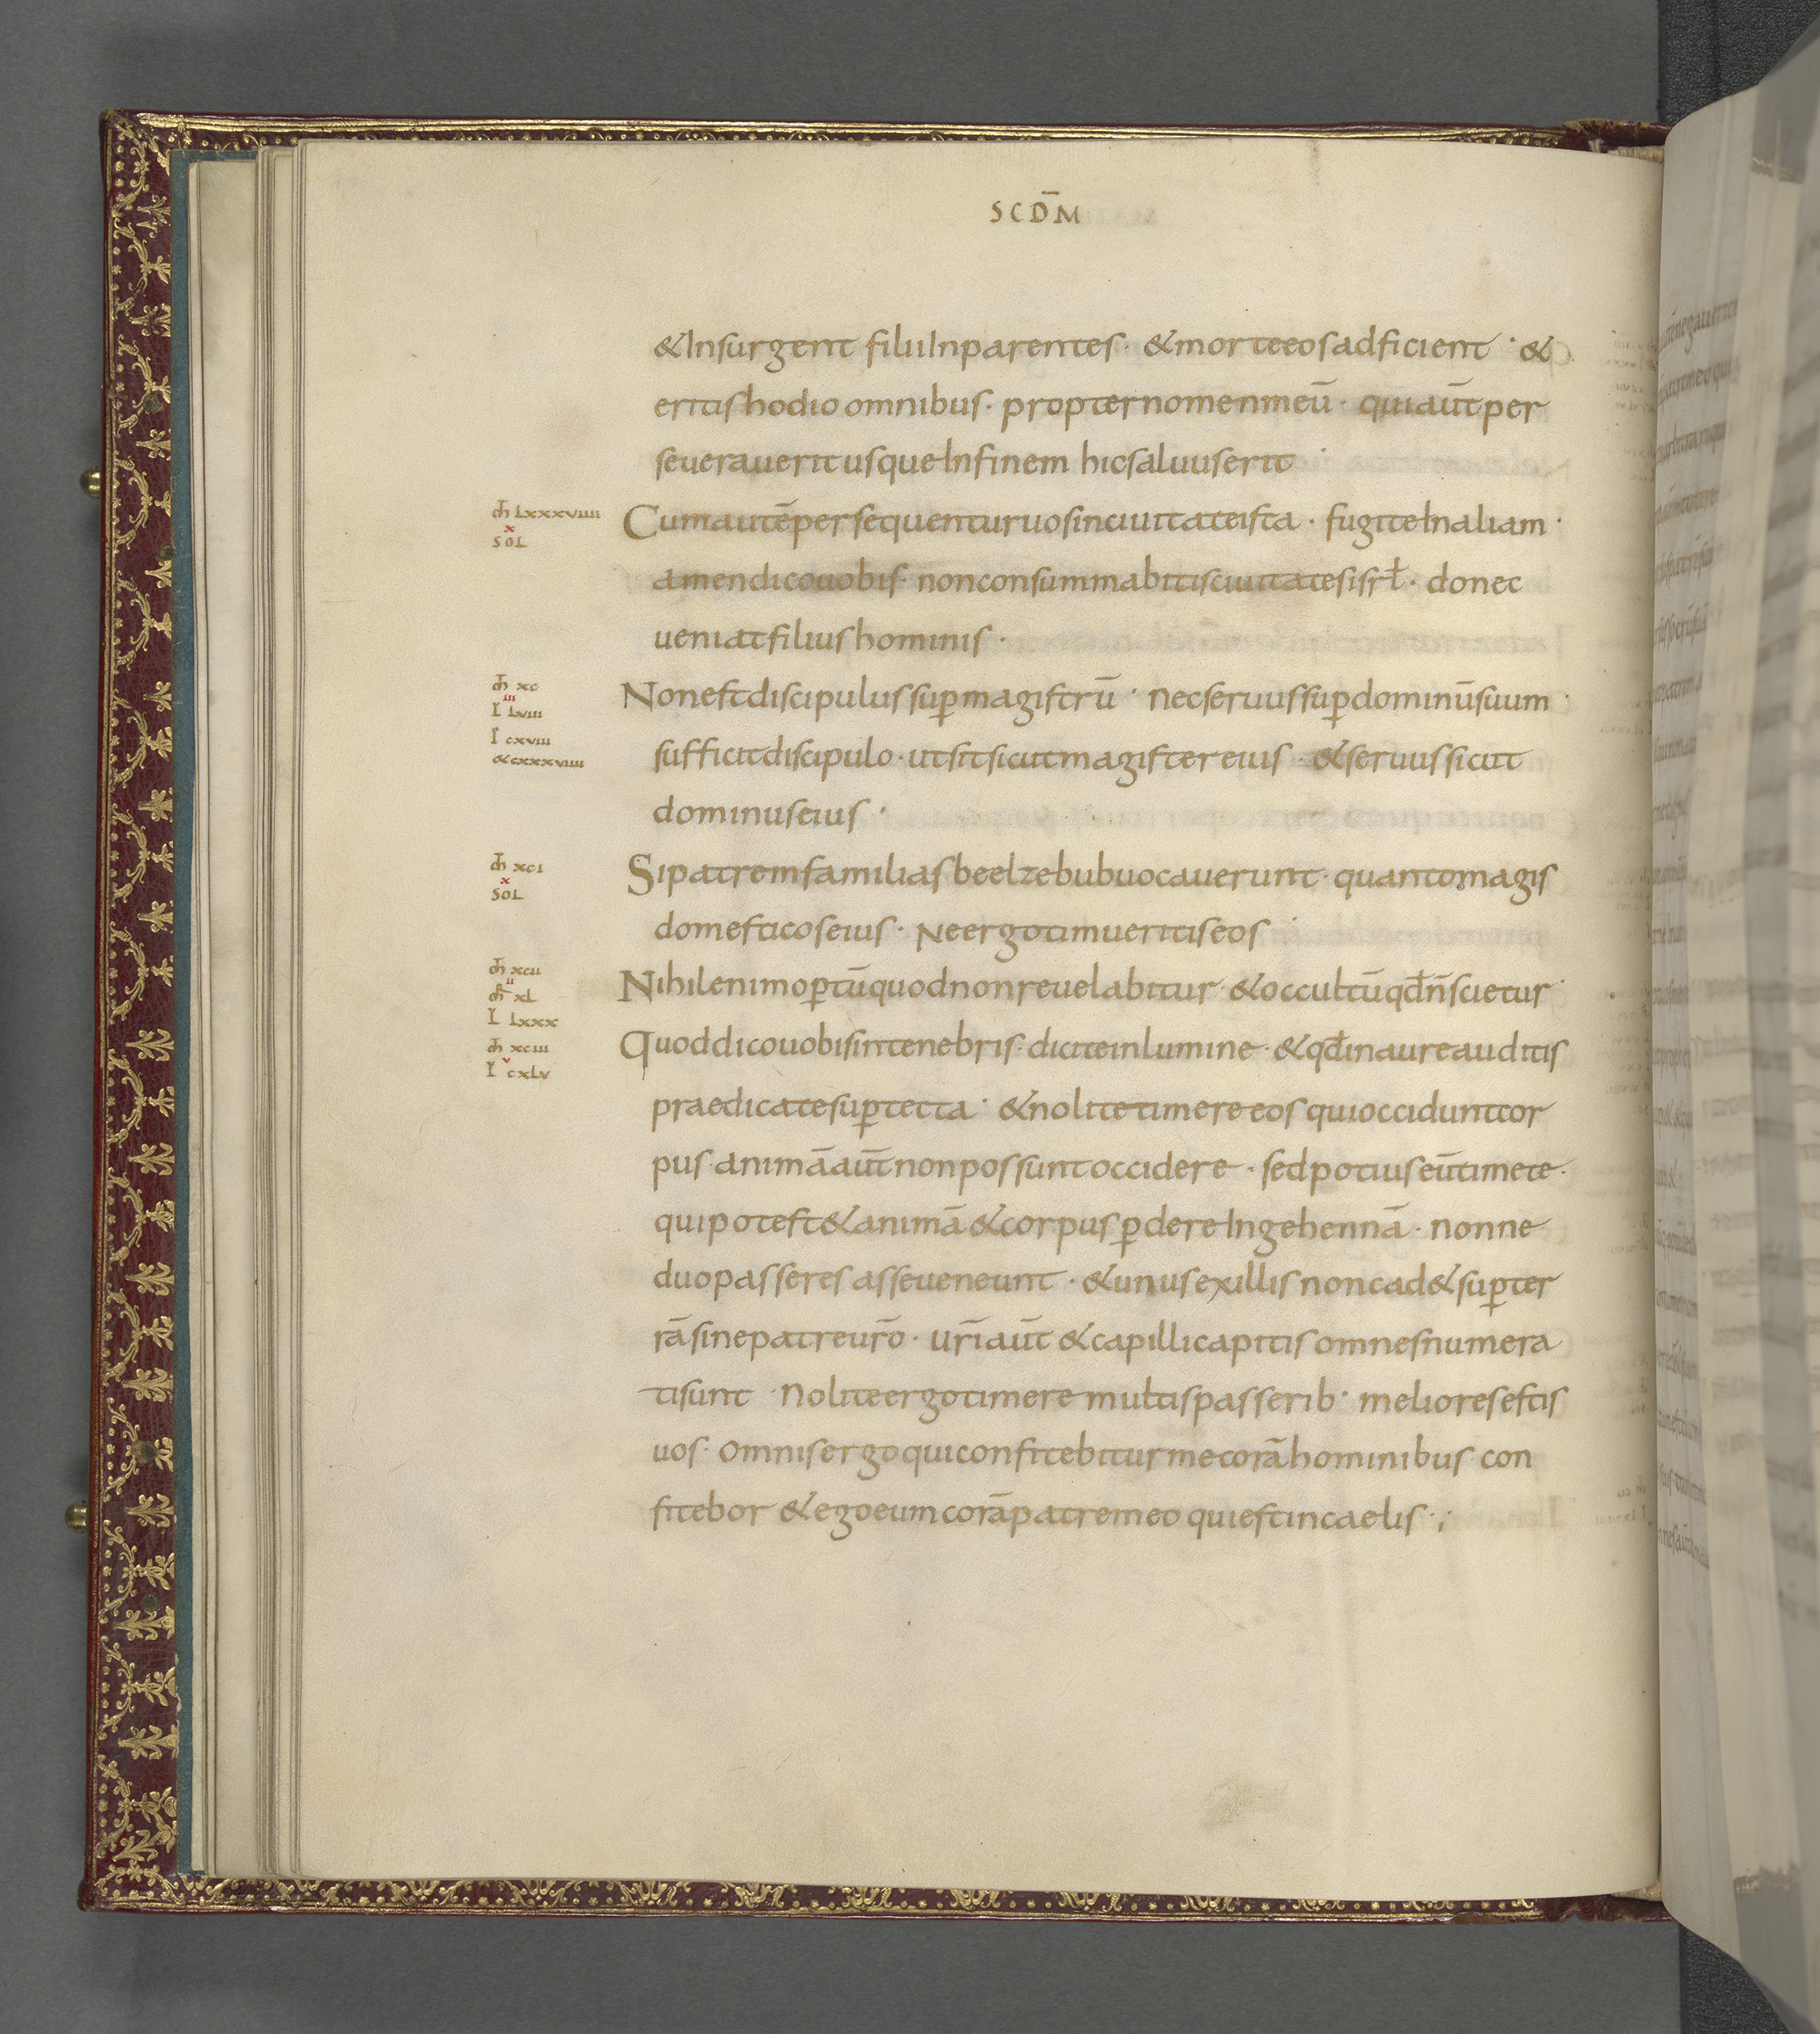 SCD̄M
&Insurgent filiiInparentes · &morteeosadficient · &
eritishodio omnibus · propternomenmeū · quiaūtper
seueraueritusqueInfinem hicsaluuserit ·
m̄ Lxxxviiii
x
SOL
Cumautēpersequenturuosinciuitateista · fugiteInaliam ·
amendicouobis · nonconsummabitisciuitatesisrł · donec
ueniatfiliushominis ·
m̄ xc
iii
L Lviii
I cxviii
&cxxxviiii
Nonestdiscipulussup̱magistrū · necseruussup̱dominūsuum ·
sufficitdiscipulo · utsitsicutmagistereius · &seruussicut
dominuseius ·
m̄ xci
x
SOL
Sipatremfamiliasbeelzebubuocauerunt · quantomagis
domesticoseius · Neergotimueritiseos ·
m̄ xcii
ii
xL
L Lxxx
Nihilenimop̱tūquodnonreuelabitur · &occultūqđn̄scietur ·
m̄ xciii
v
L cxLv
Quoddicouobisintenebris · diciteinlumine · &qđinaureauditis
praedicatesup̱tecta · &nolitetimere eos quiocciduntcor
pus · animāaūtnonpossuntoccidere · sedpotiuseūtimete ·
quipotest&animā&corpus p̱dereIngehennā · nonne
duopasseres asseueneunt · &unusexillisnoncad&sup̱ter
rāsinepatreur̄o · ur̄iaūt &capillicapitis omnesnumera
tisunt · Noliteergotimere multispasserib · melioresestis
uos · omnisergoquiconfitebiturmecorāhominibus · con
fitebor &egoeumcorāpatremeo quiestincaelis · ;